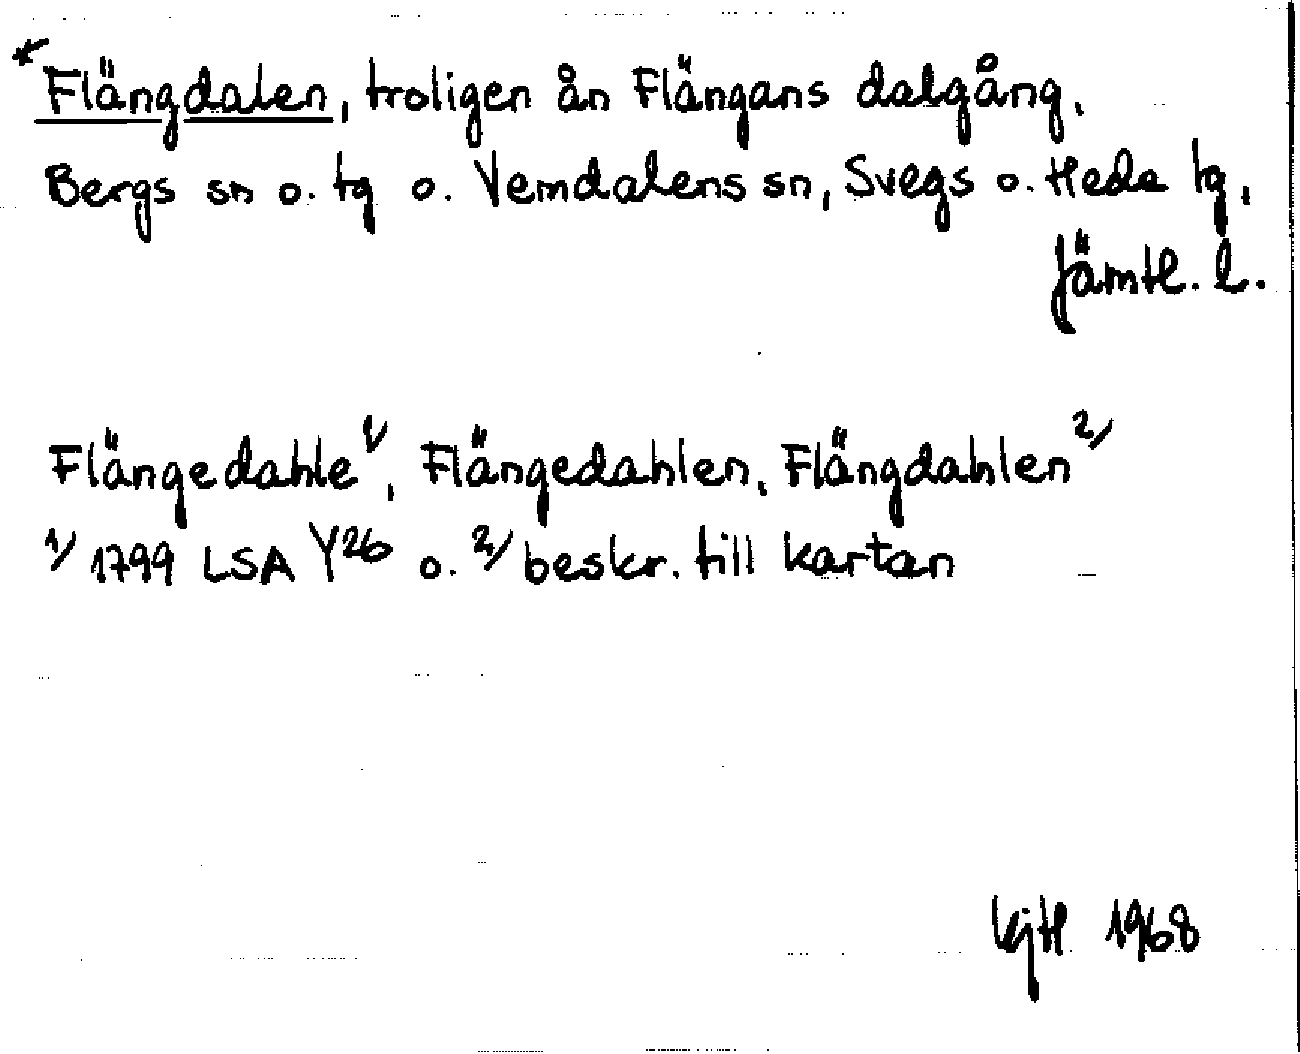 * Flängdalen, troligen ån Flängans dalgång.
Bergs sn o. tg o. Vemdalens sn, Svegs o. Heds tg.
Jämtl. l.
Flängedahle 1/, Flängedahlen, Flängdahlen 2/
1/ 1799 LSA Y26 o. 2/ beskr. till kartan
1968